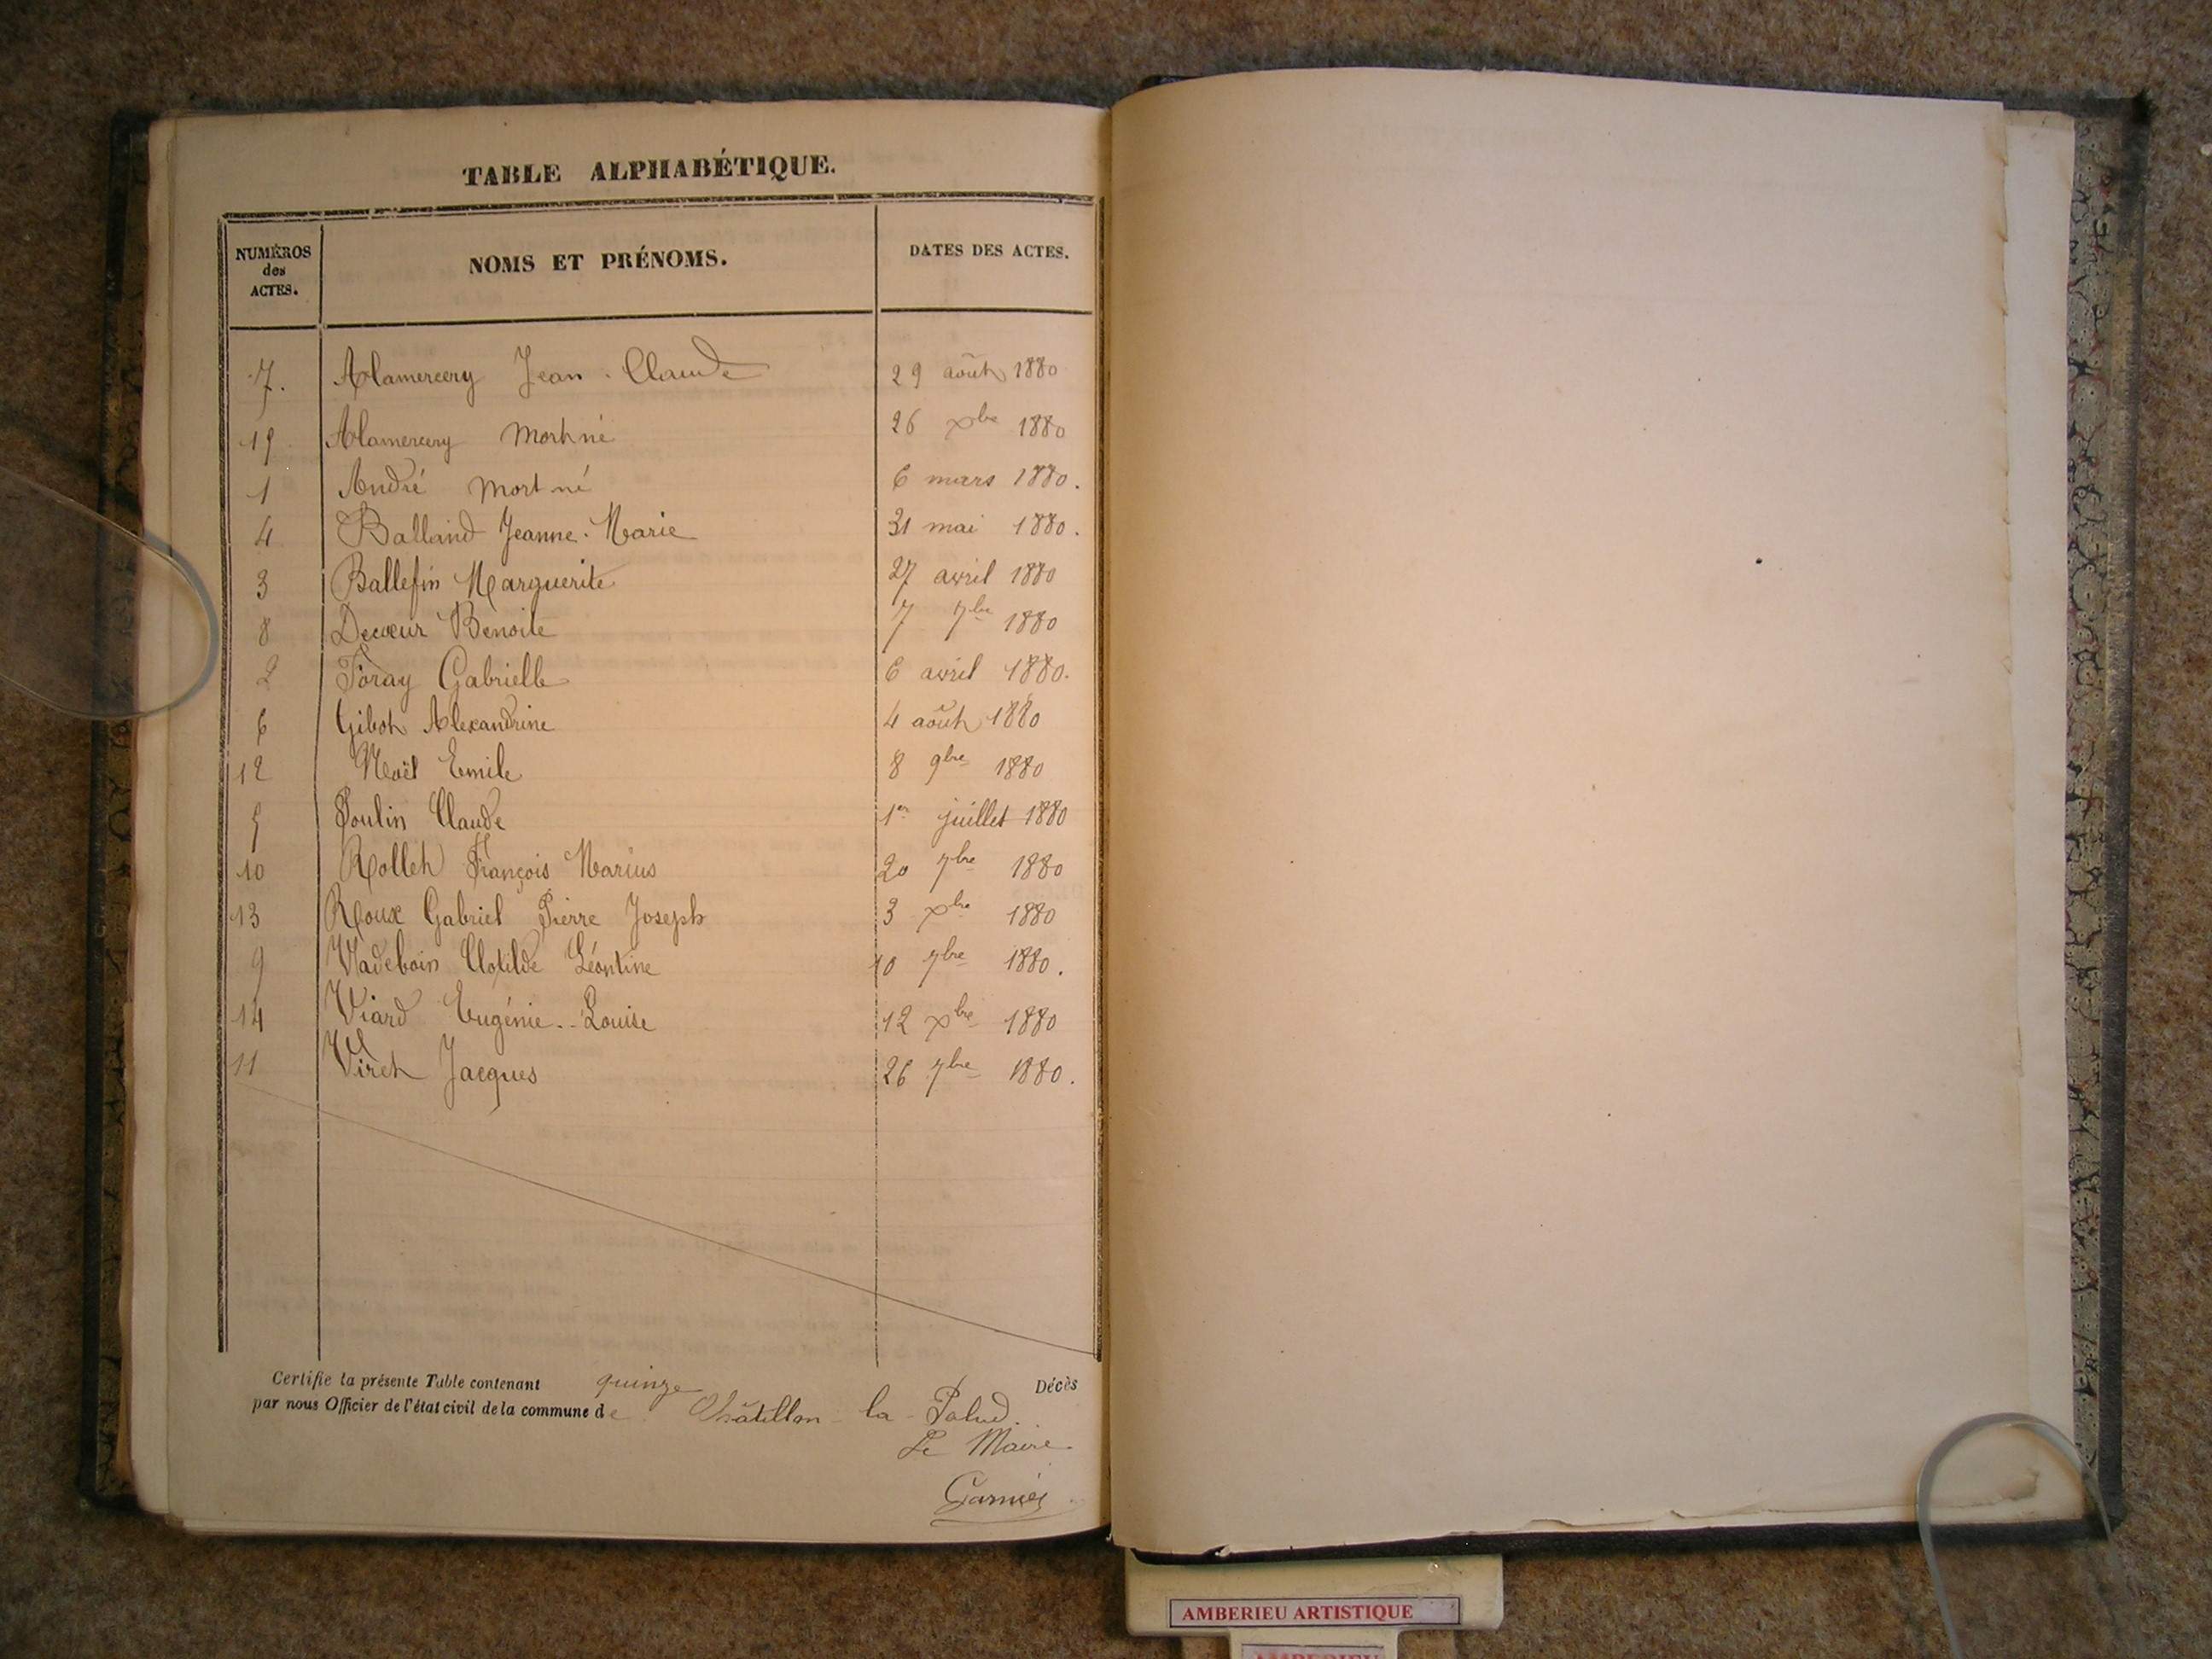 TABLE ALPHABÉTIQUE.
NUMÉROS des ACTES. NOMS ET PRÉNOMS. DATES DES ACTES.
7. Alamercery Jean-Claude 29 août 1880
15 Alamercery Mort né 26 xbre 1880
1 André Mort né 6 mars 1880.
4 Balland Jeanne-Marie 31 mai 1880.
3 Ballefin Marguerite 27 avril 1880
8 Decœur Benoite 7 7bre 1880
2 Foray Gabrielle 6 avril 1880.
6 Gibot Alexandrine 4 août 1880
12 Noël Emile 8 9bre 1880
5 Poulin Claude 1er juillet 1880
10 Rollet François Marius 20 7bre 1880
13 Roux Gabriel Pierre Joseph 3 xbre 1880
9 Vadeboin Clotilde Léontine 10 7bre 1880.
14 Viard Eugénie-Louise 12 xbre 1880
11 Viret Jacques 26 7bre 1880.
Certifie la présente Table contenant quinze Décès
par nous Officier de l'état civil de la commune de Châtillon-la-Palud.
Le Maire
Garnier
AMBERIEU ARTISTIQUE
AMBERIEU